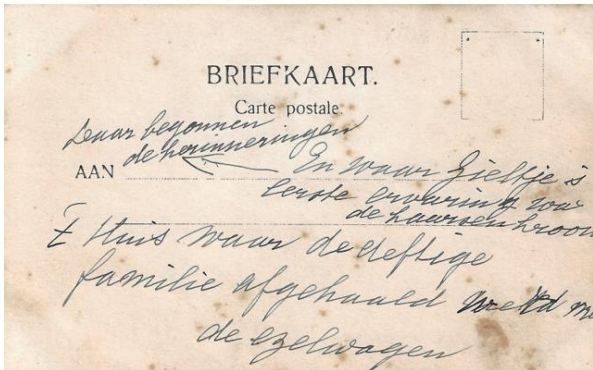 BRIEFKAART.
Carte postale.
Daar begonnen
de herinneringen
AAN
En waar Zieltje's
eerste ervaring was
de kaarsenkroon
't Huis waar de deftige
familie afgehaald werd me
de ezelwagen